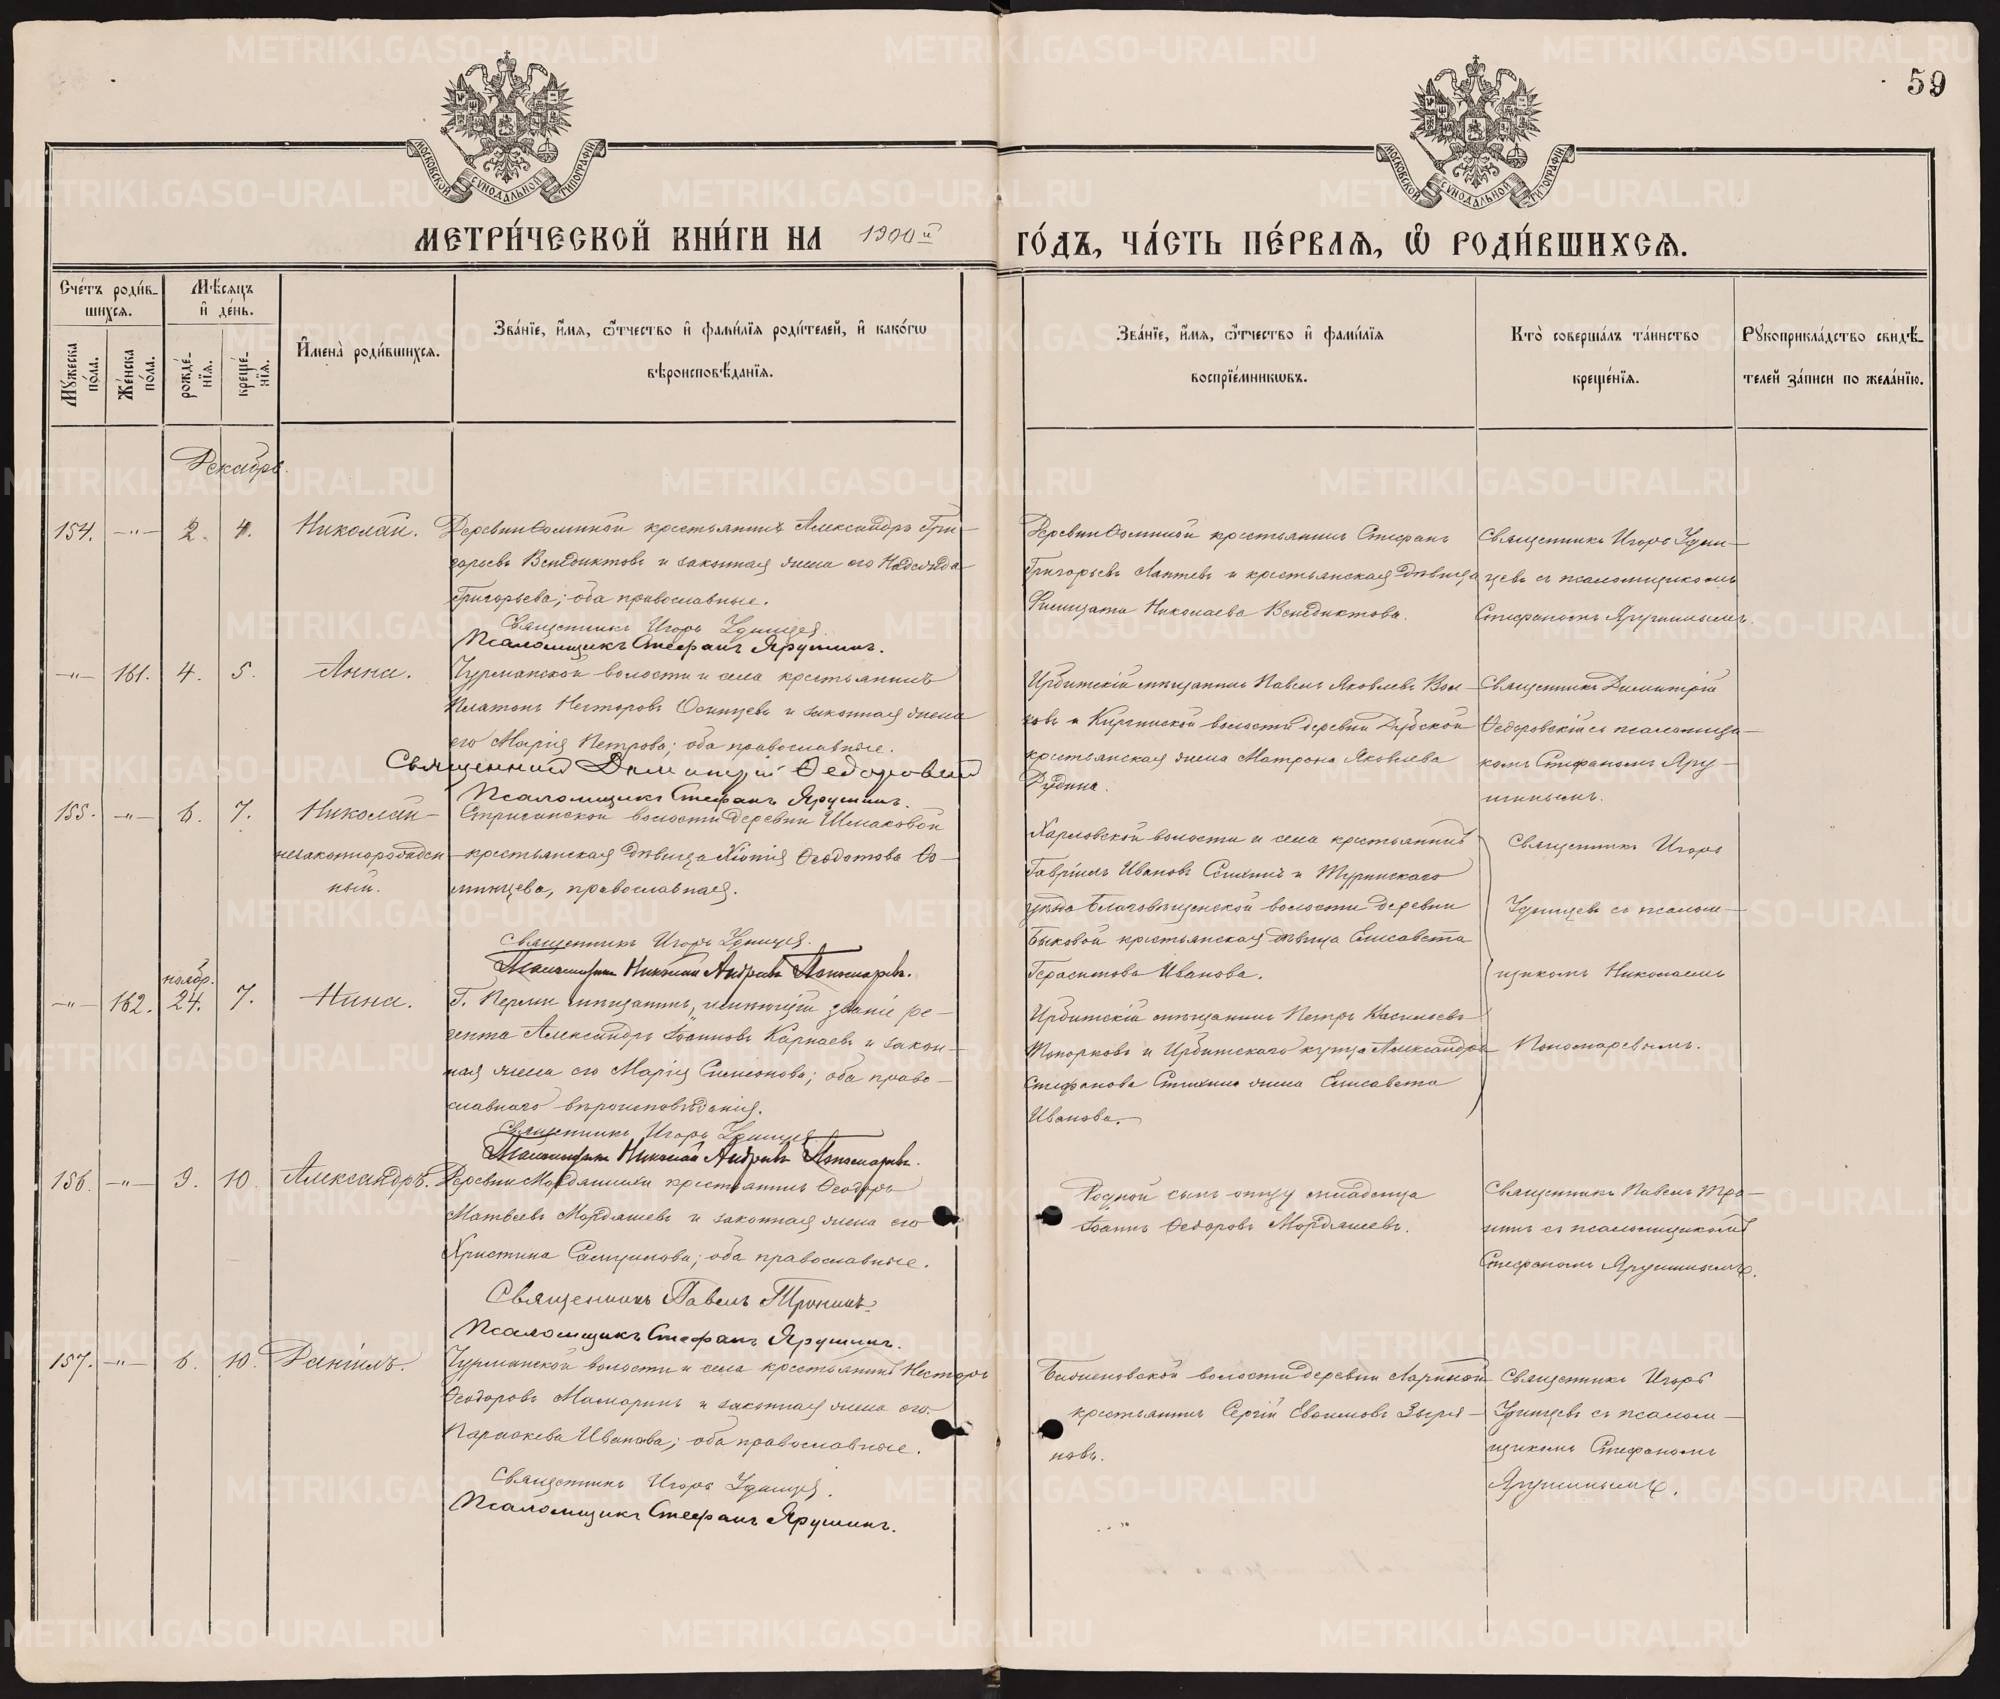 59
МОСКОВСКОЙ СѴНОДАЛЬНОЙ ТИПОГРАФІИ
МОСКОВСКОЙ СѴНОДАЛЬНОЙ ТИПОГРАФІИ
МЕТРИ́ЧЕСКОЙ КНИ́ГИ НА 1900й ГО́ДЪ, ЧА́СТЬ ПЕ́РВАѦ, Ѡ҆ РОДИ́ВШИХСѦ.
Сче́тъ роди́в-
шихсѧ.
Мꙋ́жеска по́ла.
Же́нска по́ла.
Мѣ́сѧцъ
и҆ де́нь.
рожде́-нїѧ.
креще́-нїѧ.
И҆мена̀ роди́вшихсѧ.
Зва́нїе, и҆́мѧ, ѻ҆́тчество и҆ фамі́лїѧ роди́телей, и҆ како́гѡ
вѣроисповѣ́данїѧ.
Зва́нїе, и҆́мѧ, ѻ҆́тчество и҆ фамі́лїѧ
воспрїе́мникѡвъ.
Кто̀ соверша́лъ та́инство
креще́нїѧ.
Рꙋкоприкла́дство свидѣ́-
телей за́писи по жела́нїю.
Декабрь.
154. —"— 2. 4. Николай.
Деревни Ѳоминой крестьянинъ Александръ Гри-
горьевъ Венедиктовъ и законная жена его Надежда
Григорьева; оба православные.
Священникъ Игорь Удинцевъ.
Псаломщикъ Стефанъ Ярушинъ.
Деревни Ѳоминой крестьянинъ Стефанъ
Григорьевъ Лаптевъ и крестьянская дѣвица
Фелицата Николаева Венедиктова.
Священникъ Игорь Удин-
цевъ съ псаломщикомъ
Стефаномъ Ярушинымъ.
—"— 161. 4. 5. Анна.
Чурманской волости и села крестьянинъ
Платонъ Несторовъ Осинцевъ и законная жена
его Марія Петрова; оба православные.
Священник Димитрій Ѳедоровскій
Псаломщикъ Стефанъ Ярушинъ.
Ирбитскій мѣщанинъ Павелъ Яковлевъ Вол-
ковъ и Киргинской волости деревни Дубской
крестьянская жена Матрона Яковлева
Рудина.
Священникъ Димитрій
Ѳедоровскій съ псаломщи-
комъ Стефаномъ Яру-
шинымъ.
155. —"— 6. 7. Николай -
незаконнорожден-
ный.
Стриганской волости деревни Шмаковой
крестьянская дѣвица Хіонія Ѳеодотова Ѳо-
минцева, православная.
Священникъ Игорь Удинцевъ.
Псаломщикъ Николай Андреевъ Пономаревъ.
Харловской волости и села крестьянинъ
Гавріилъ Ивановъ и Туринскаго
уѣзда Благовѣщенской волости деревни
Быковой крестьянская дѣвица Елисавета
Герасимова Иванова.
Священникъ Игорь
Удинцевъ съ псалом-
щикомъ Николаемъ
Пономаревымъ.
—"— 162. ноябр. 24. 7. Нина.
Г. Перми мѣщанинъ, имѣющій званіе ре-
гента Александръ Іоанновъ Карпаевъ и закон-
ная жена его Марія Симеонова; оба право-
славнаго вѣроисповѣданія.
Священникъ Игорь Удинцевъ
Псаломщикъ Николай Андреевъ Пономаревъ.
Ирбитскій мѣщанинъ Петръ Васильевъ
Топорковъ и Ирбитскаго купца Александра
Стефанова жена Елисавета
Иванова.
156. —"— 9. 10. Александръ.
Деревни Мордяшихи крестьянинъ Ѳеодоръ
Матвеевъ Мордяшевъ и законная жена его
Христина; оба православные.
Священникъ Павелъ Тронинъ.
Псаломщикъ Стефанъ Ярушинъ.
Родной сынъ отцу младенца
Іоаннъ Ѳеодоровъ Мордяшевъ.
Священникъ Павелъ Тро-
нинъ съ псаломщикомъ
Стефаномъ Ярушинымъ.
157. —"— 6. 10. Даніилъ.
Чурманской волости и села крестьянинъ Несторъ
Ѳеодоровъ Мамаринъ и законная жена его
Параскева Иванова; оба православные.
Священникъ Игорь Удинцевъ.
Псаломщикъ Стефанъ Ярушинъ.
волости деревни Лариной
крестьянинъ Сергій Евѳимовъ Зыря-
новъ.
Священникъ Игорь
Удинцевъ съ псалом-
щикомъ Стефаномъ
Ярушинымъ.
METRIKI.GASO-URAL.RU